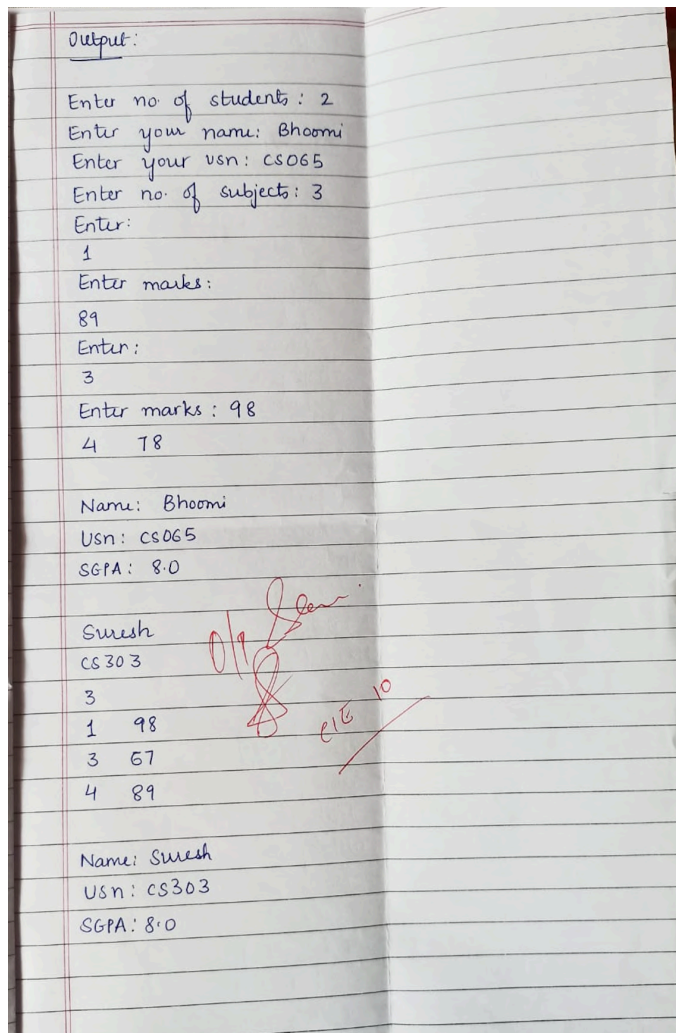 Output:
Enter no. of students: 2
Enter your name: Bhoomi
Enter your usn: CS065
Enter no. of subjects: 3
Enter:
1
Enter marks:
89
Enter:
3
Enter marks: 98
4 78
Name: Bhoomi
Usn: CS065
SGPA: 8.0
Suresh
CS303
O/P
3
1 98
CIE 10
3 67
4 89
Name: Suresh
USn: CS303
SGPA: 8.0